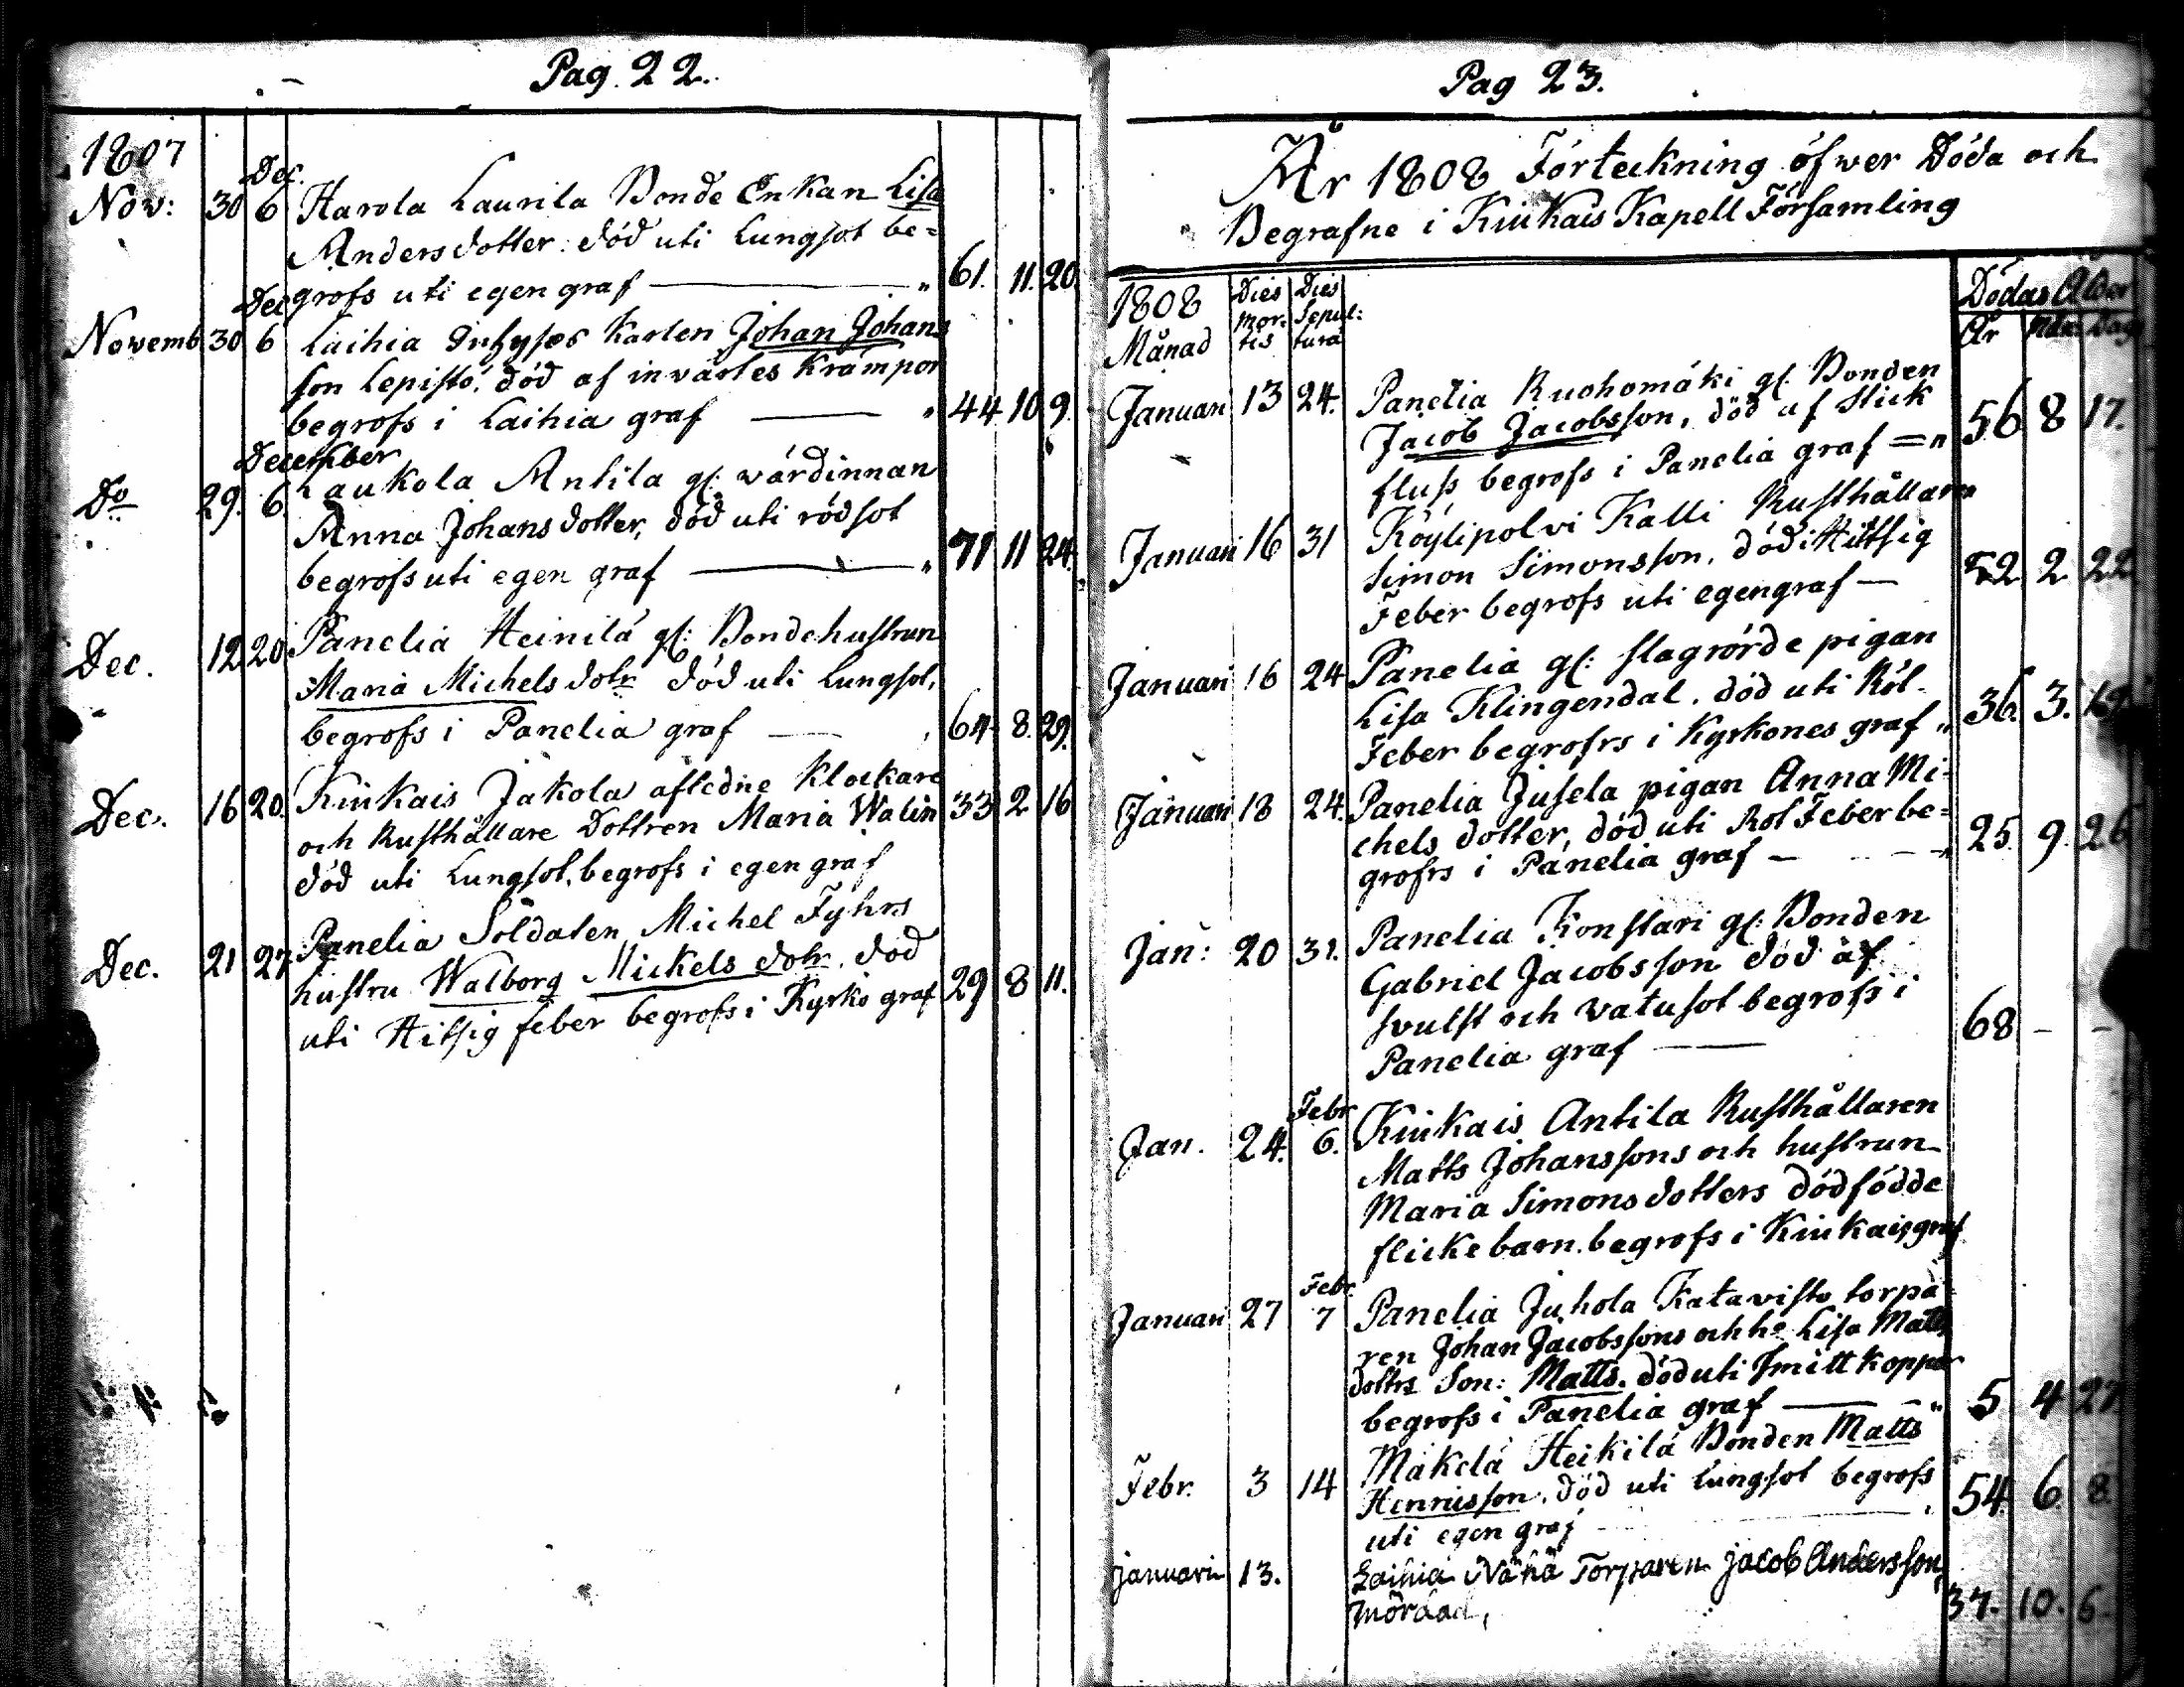 Pag. 22.
1807
Dec.
Nov: 30 6 Harola Laurila Bonde Enkan Lisa
Andersdotter. död uti Lungsot be=
grofs uti egen graf — " 61. 11. 20.
Dec
Novemb 30 6 Laihia Inhyses Karlen Johan Johans
son Lepistö, död af invärtes Krampor
begrofs i Laihia graf — " 44 10 9.
December
Do 29. 6. Laukola Antila gl: värdinnan
Anna Johansdotter, död uti rödsot
begrofs uti egen graf — " 71 11 24.
Dec. 12 20 Panelia Heinilä gl: Bondehustrun
Maria Michelsdotr död uti Lungsot,
begrofs i Panelia graf — 64 8. 29.
Dec. 16 20. Kiukais Jakola afledne Klockare
och Rusthållare Dottren Maria Walin 33 2 16
död uti Lungsot, begrofs i egen graf
Dec. 21 27 Panelia Soldaten Michel Fyhrs
hustru Walborg Mickels dotr. död
uti Hitsig feber begrofs i Kyrko graf 29 8 11.
Pag 23.
År 1808 Förteckning öfwer Döda och
Begrafne i Kiukais Kapell Församling
1808 Månad Dies mor: tis Dies Sepul: tura Dödas Ålder År Mån: Dag
Januari 13 24. Panelia Ruohomäki gl. Bonden
Jacob Jacobsson, död af Stick
fluss begrofs i Panelia graf = " 56 8 17.
Januari 16 31 Köylipolvi Kalli Rusthållaren
Simon Simonsson, död i Hittsig
Feber begrofs uti egengraf — 52 2 22
Januari 16 24 Panelia gl: slagrörde pigan
Lisa Klingendal. död uti Röt-
Feber begrofrs i Kyrkones graf " 36. 3. 19
Januari 18 24. Panelia Jusela pigan Anna Mi=
chels dotter, död uti Rot Feber be=
grofrs i Panelia graf — 25. 9. 26
Jan: 20 31. Panelia Konstari gl: Bonden
Gabriel Jacobsson död af
svulst och vatusot begrofs i
Panelia graf — 68 - -
Febr
Jan. 24. 6. Kiukais Antila Rusthållaren
Matts Johanssons och hustrun
Maria Simonsdotters dödfödde
flickebarn. begrofs i Kiukais graf
Febr.
Januari 27 7 Panelia Juhola Katavisto torpa=
ren Johan Jacobssons och h: Lisa Matts
dottrs Son: Matts. död uti Smittkoppor
begrofs i Panelia graf — " 5 4 27
Febr. 3 14 Mäkelä Heikilä Bonden Matts
Henricsson. död uti Lungsot begrofs
uti egen graf 54. 6. 8.
januari 13. Laihia Nähä Torparen jacob Andersson,
mördad, 37. 10. 6.